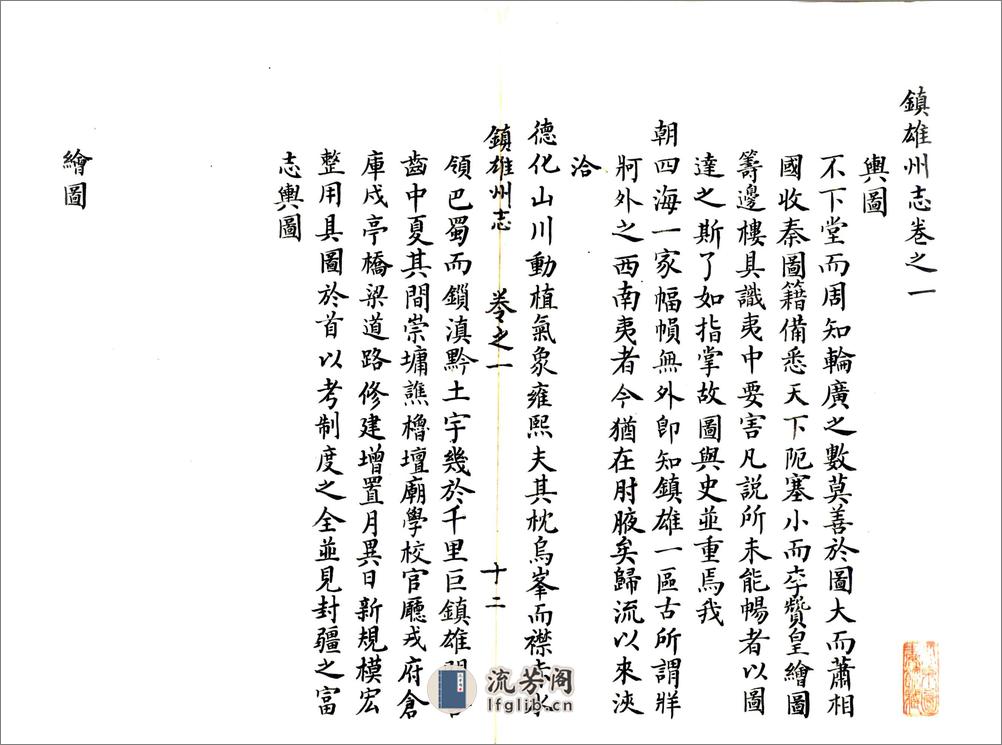 鎮雄州志卷之一
輿圖
不下堂而周知輪廣之數莫善於圖大而蕭相
國收秦圖籍備悉天下阨塞小而李贊皇繪圖
籌邊樓具識夷中要害凡説所未能暢者以圖
達之斯了如指掌故圖與史並重焉我
朝四海一家幅幀無外卽知鎮雄一區古所謂牂
牁外之西南夷者今猶在肘腋矣歸流以來浹
洽
德化山川動植氣象雍熙夫其枕烏峯而襟赤水
鎮雄州志 卷之一 十二
領巴蜀而鎖滇黔土宇幾於千里巨鎮雄
齒中夏其間崇墉譙櫓壇廟學校官廳戎府倉
庫戍亭橋梁道路修建增置月異日新規模宏
整用具圖於首以考制度之全並見封疆之富
志輿圖
繪圖
流芳阁
lfglib.cn